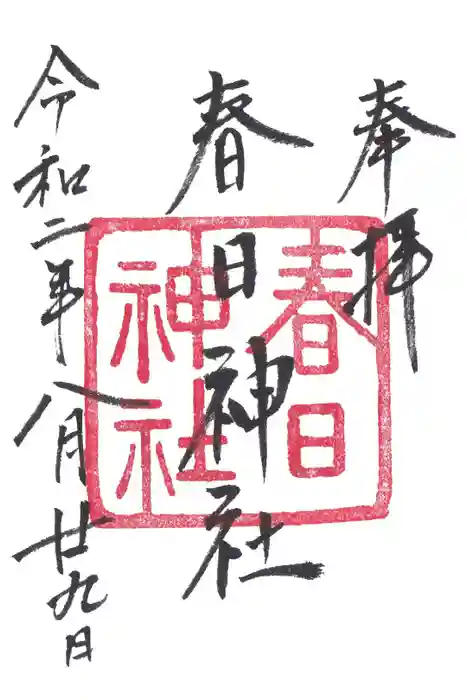 奉拝
春日
神社
春日神社
令和二年八月廿九日